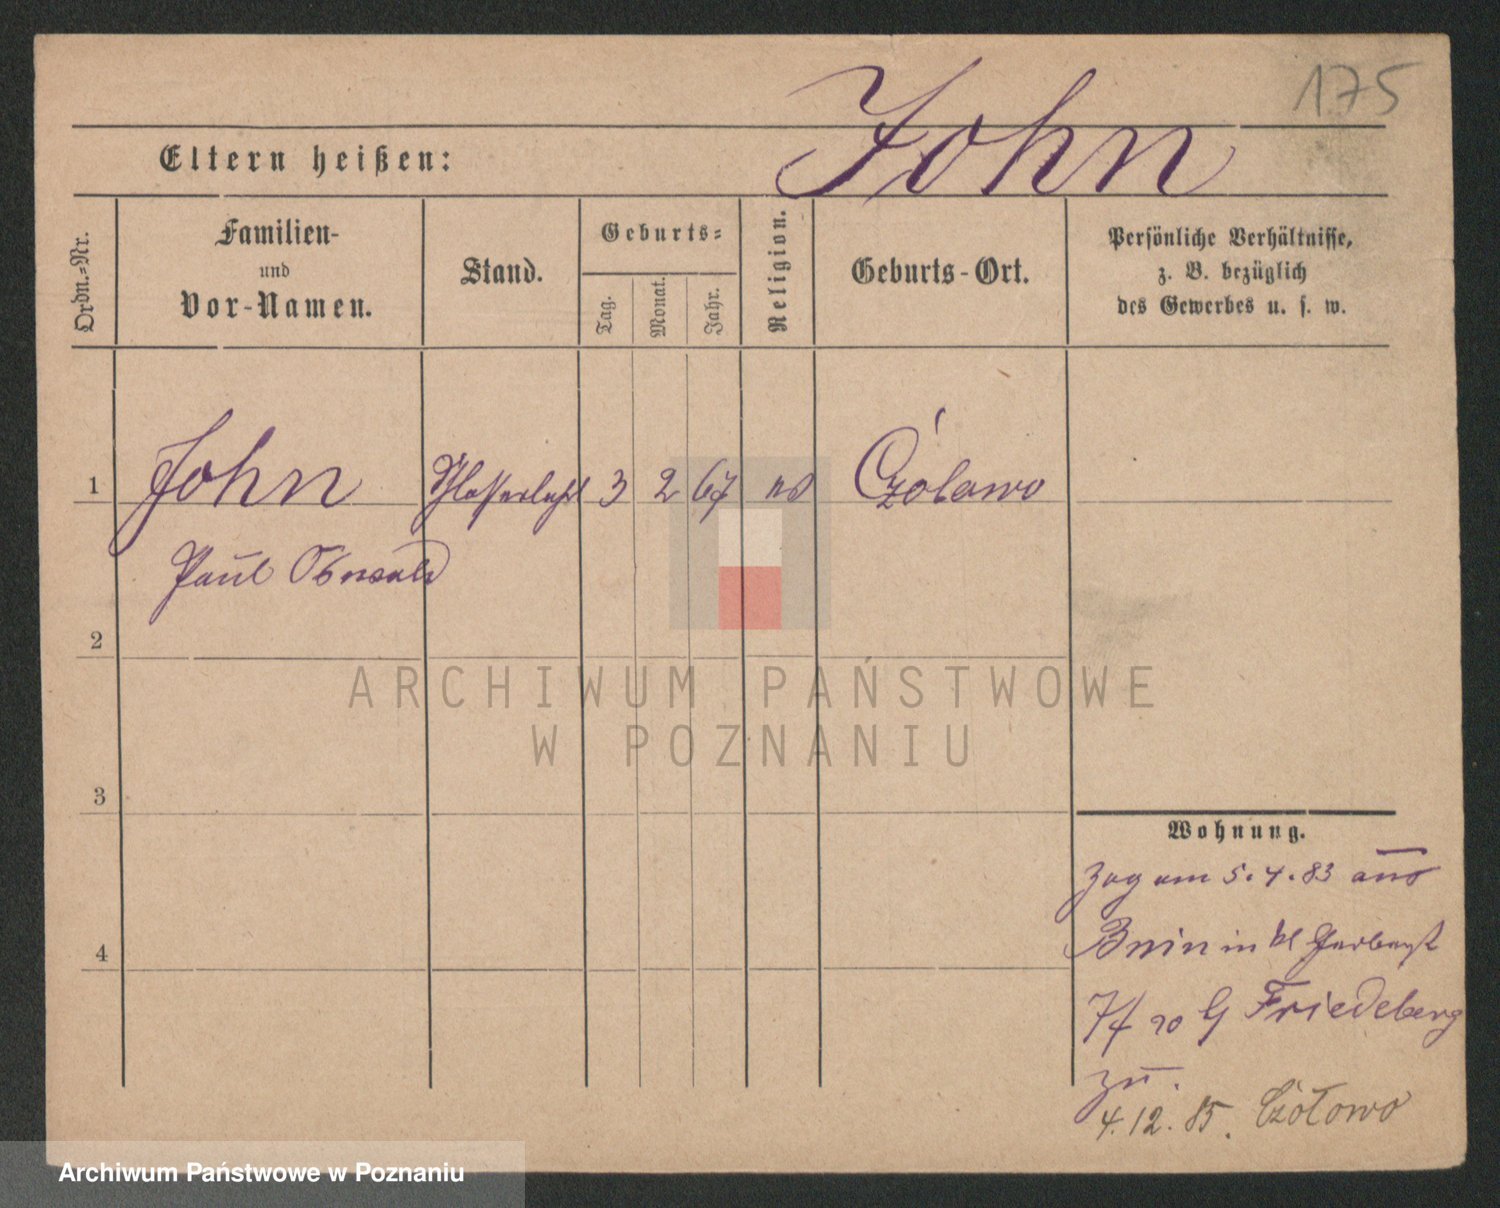 175
John
Eltern heißen:
Ordn.=Nr.
Familien-
und
Vor-Namen.
Stand.
Geburts=
Tag.
Monat.
Jahr.
Religion.
Geburts-Ort.
Persönliche Verhältnisse,
z. B. bezüglich
des Gewerbes u. s. w.
1 John Schlosserlehrl 3 2 67 Czólawo
Paul Oswald
2
3
4
Wohnung.
Zog am 5.4.83 aus
Bnin in kl Gerberst
7f zo G Friedeberg
zu.
4.12.85. Czołowo
ARCHIWUM PAŃSTWOWE
W POZNANIU
Archiwum Państwowe w Poznaniu